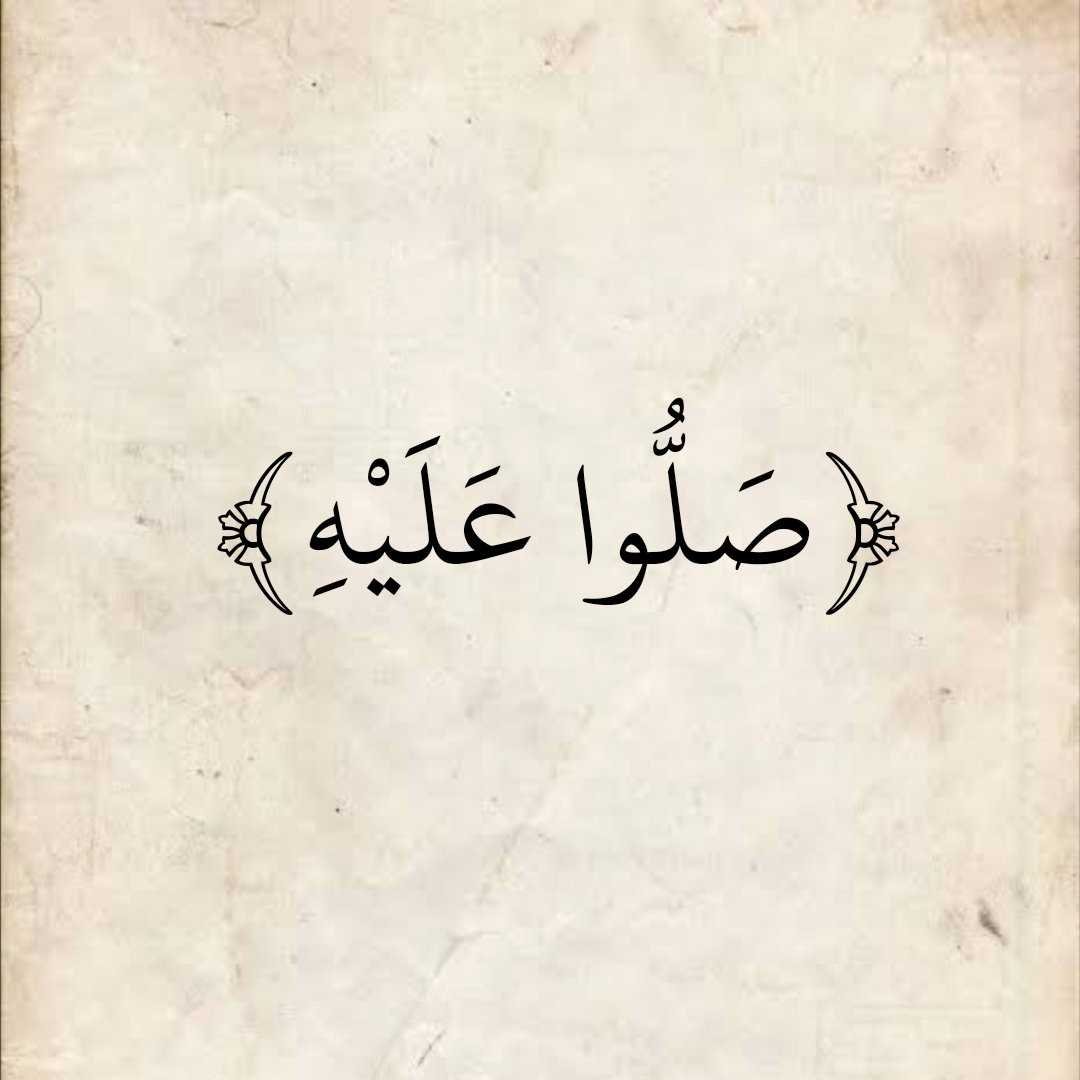 ﴿ صَلُّوا عَلَيْهِ ﴾